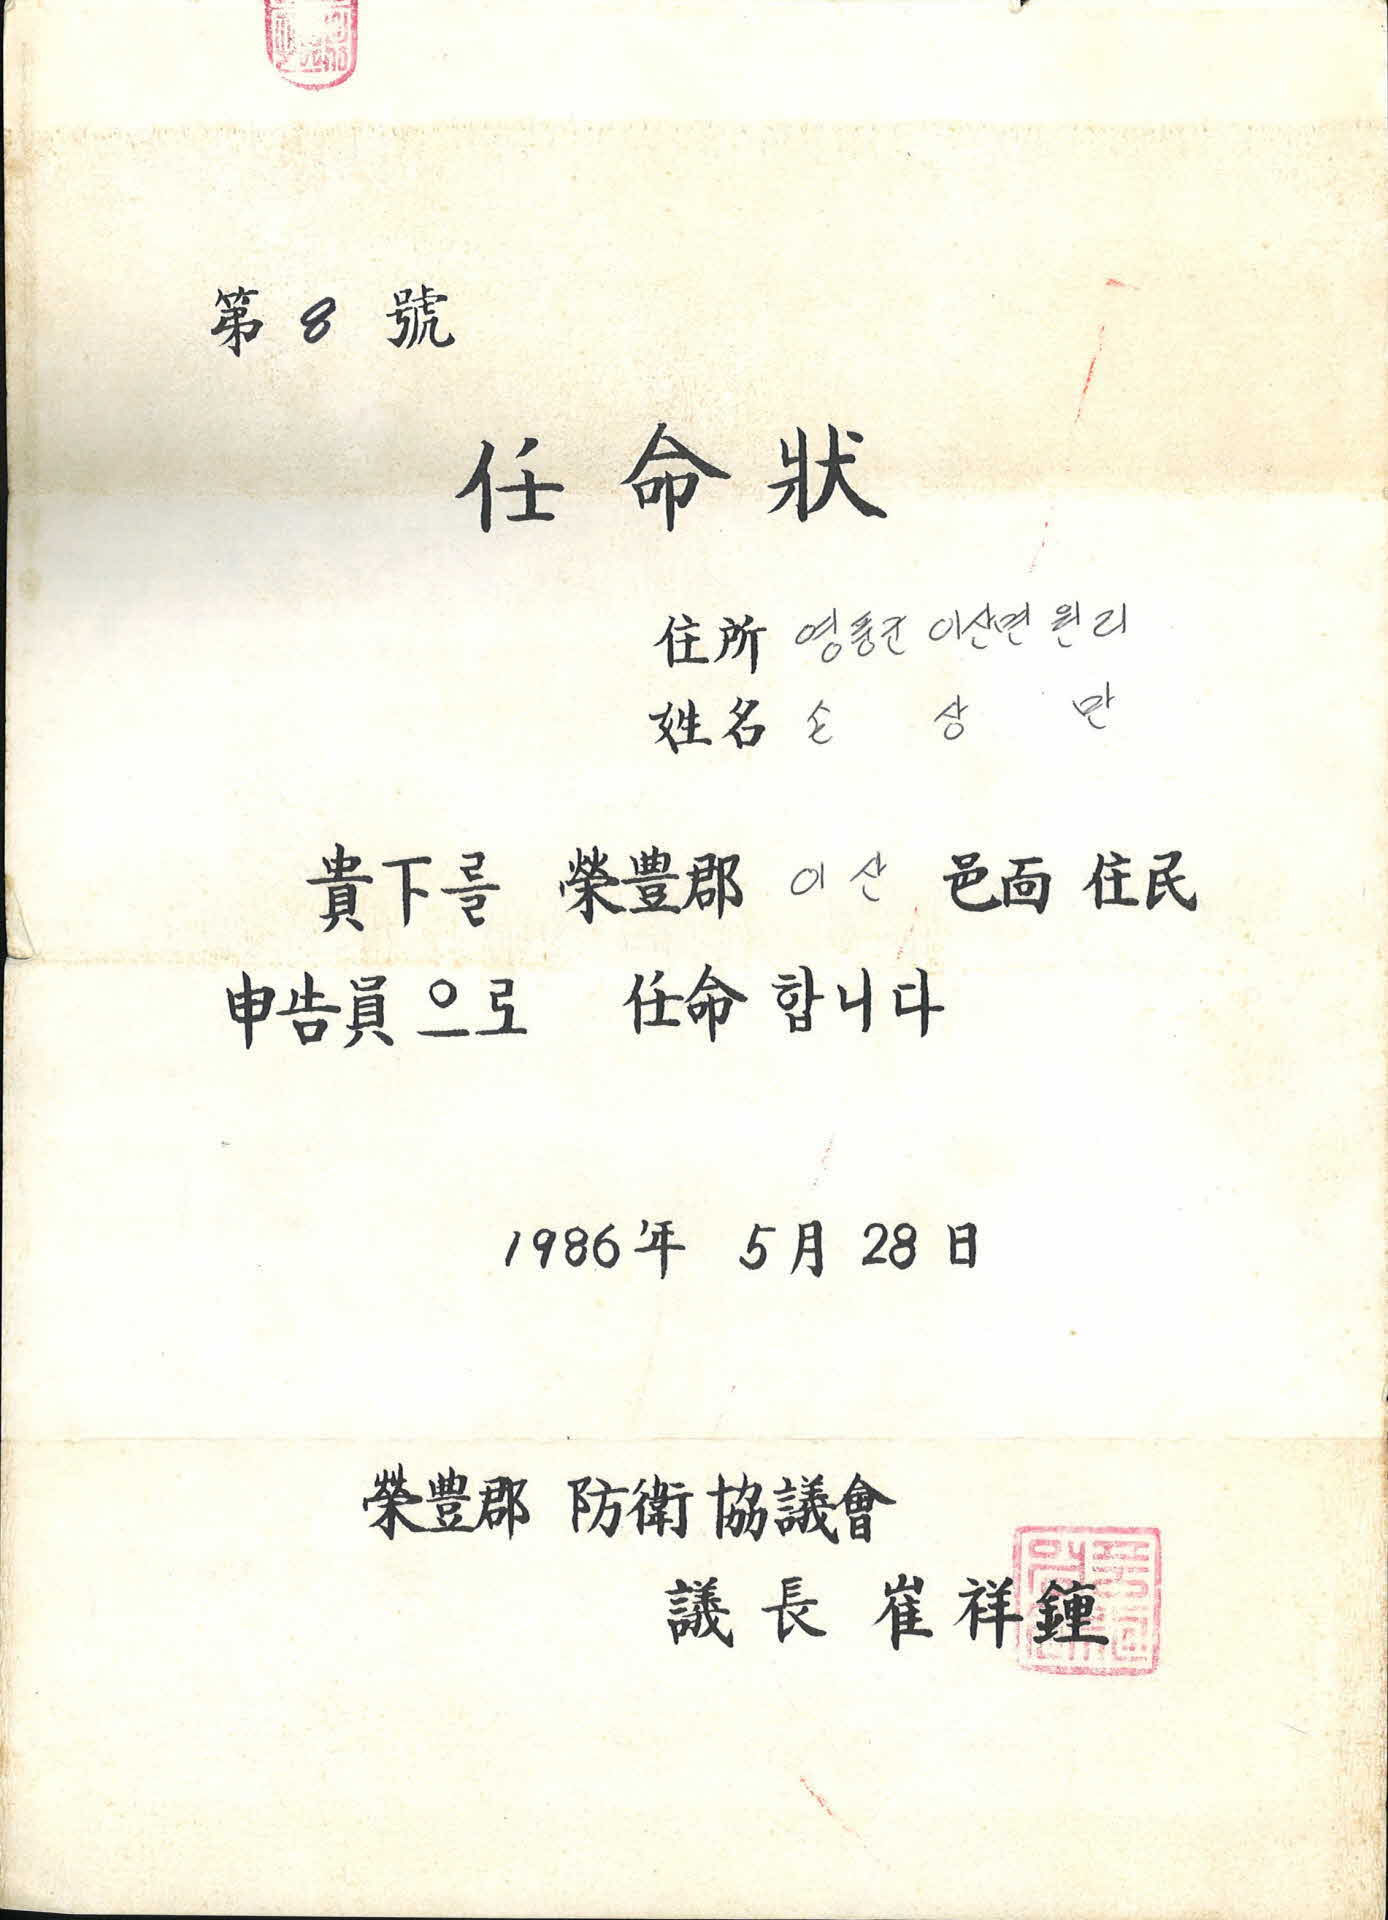 第 8 號
任命狀
住所 영풍군 이산면 원리
姓名 손 상 만
貴下를 榮豊郡 이산 邑面 住民
申告員으로 任命합니다
1986年 5月 28日
榮豊郡 防衛協議會
議長 崔祥鍾